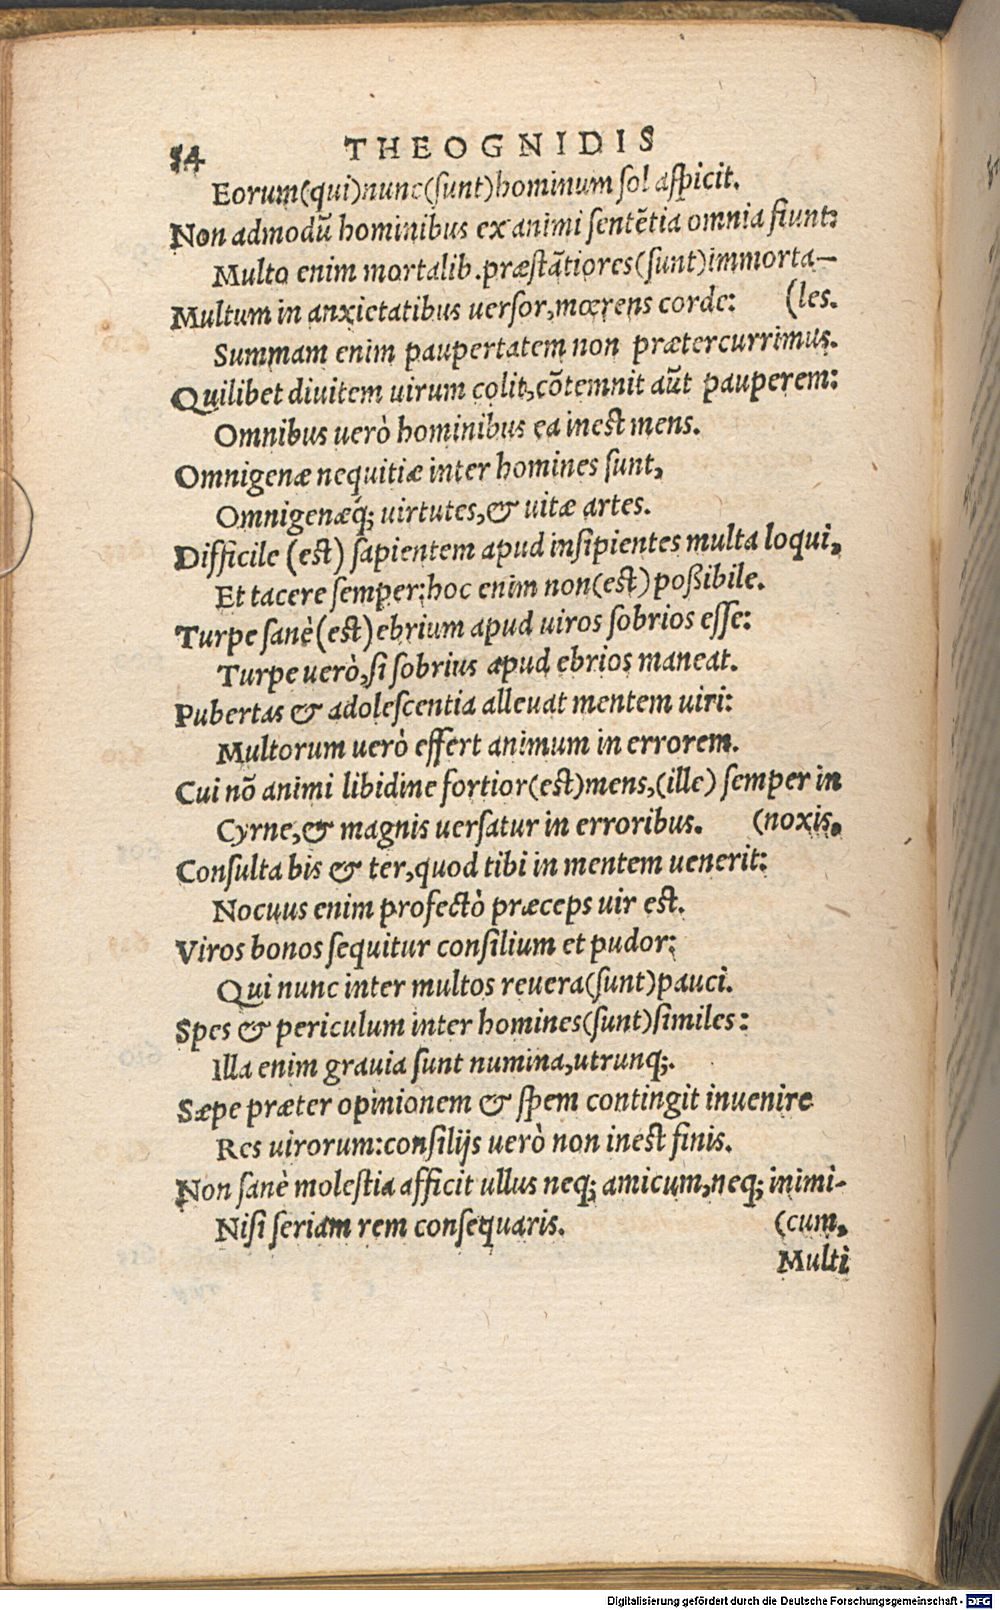 54 THEOGNIDIS
Eorum(qui)nunc(sunt)hominum sol aspicit.
Non admodũ hominibus ex animi sentẽtia omnia fiunt:
Multo enim mortalib. præstãtiores(sunt)immorta-
Multum in anxietatibus uersor,mœrens corde: (les.
Summam enim paupertatem non prætercurrimus.
Quilibet diuitem uirum colit,cõtemnit aũt pauperem:
Omnibus uerò hominibus ea inest mens.
Omnigenæ nequitiæ inter homines sunt,
Omnigenæq́; uirtutes,& uitæ artes.
Difficile (est) sapientem apud insipientes multa loqui,
Et tacere semper:hoc enim non(est)poßibile.
Turpe sanè(est)ebrium apud uiros sobrios esse:
Turpe uerò,si sobrius apud ebrios maneat.
Pubertas & adolescentia alleuat mentem uiri:
Multorum uerò effert animum in errorem.
Cui nõ animi libidine fortior(est)mens,(ille) semper in
Cyrne,& magnis uersatur in erroribus. (noxis,
Consulta bis & ter,quod tibi in mentem uenerit:
Nocuus enim profectò præceps uir est.
Viros bonos sequitur consilium et pudor:
Qui nunc inter multos reuera(sunt)pauci.
Spes & periculum inter homines(sunt)similes:
Illa enim grauia sunt numina,utrunq;.
Sæpe præter opinionem & spem contingit inuenire
Res uirorum:consilijs uerò non inest finis.
Non sanè molestia afficit ullus neq; amicum,neq; inimi-
Nisi seriam rem consequaris. (cum,
Multi
Digitalisierung gefördert durch die Deutsche Forschungsgemeinschaft - DFG